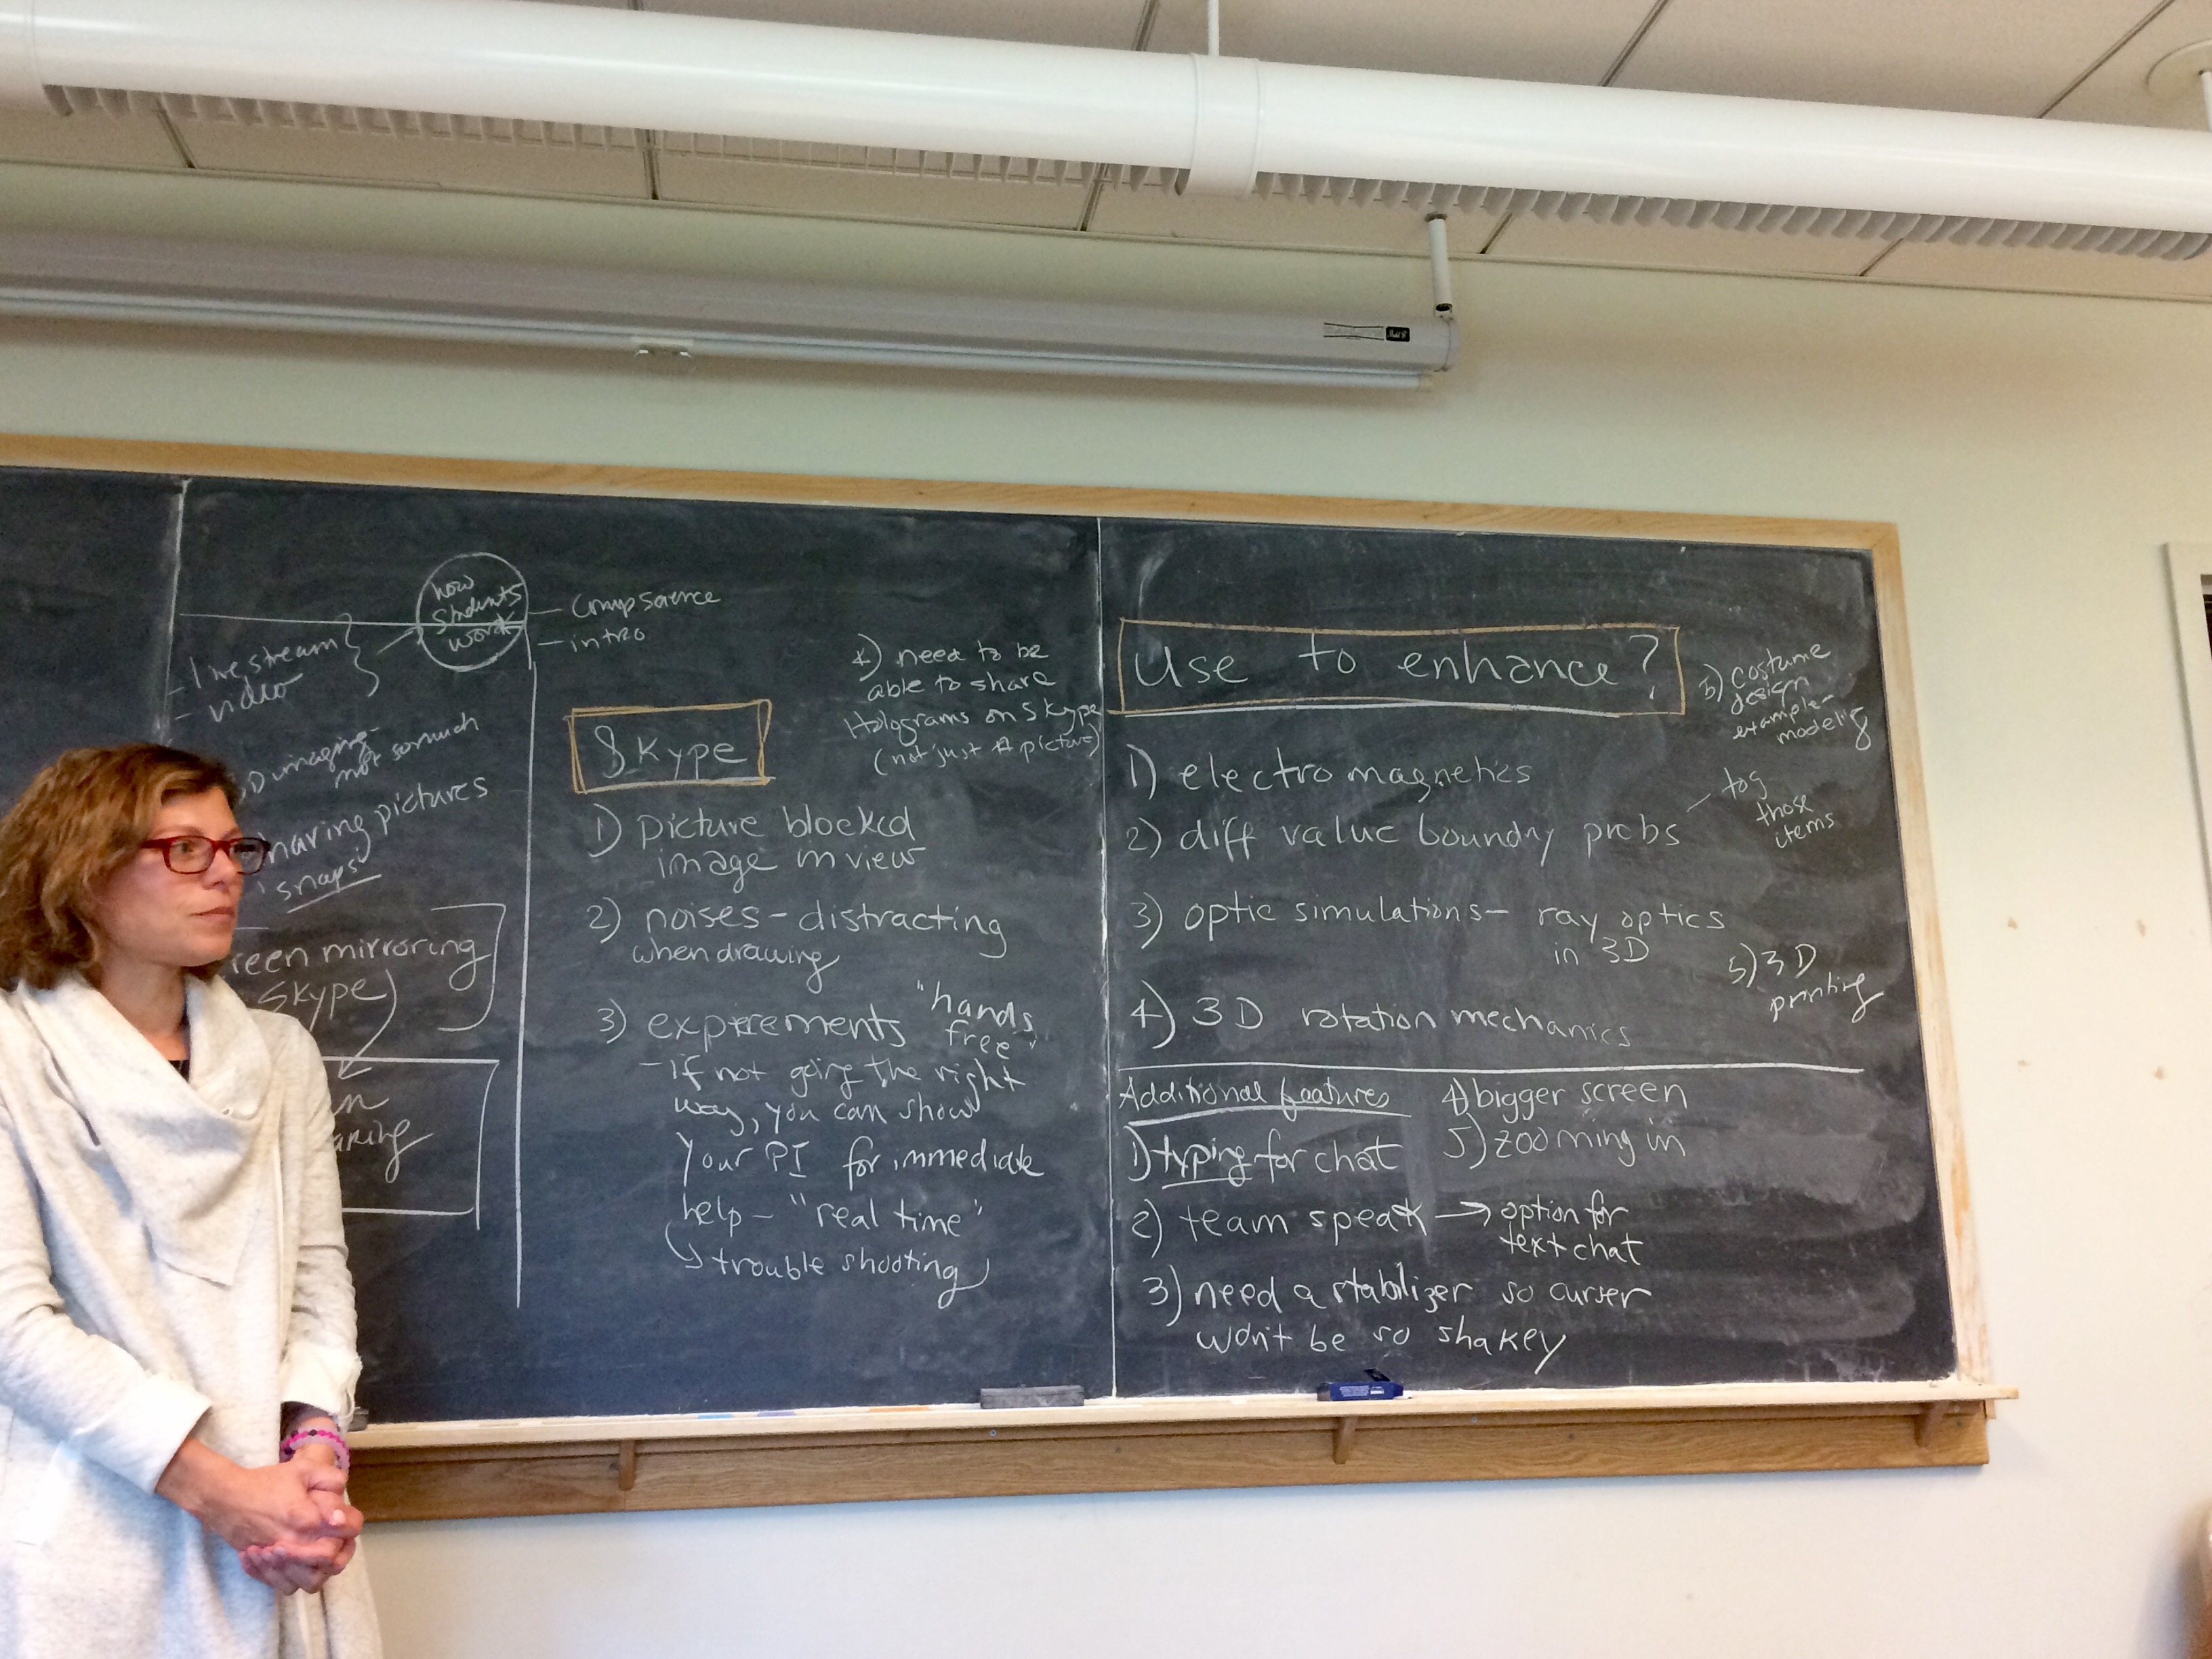 how
students
work
- Comp Science
- intro
- livestream
- video
D imaging-
not so much
sharing pictures
'snaps'
reen mirroring
Skype)
aring
Skype
1) picture blocked
image in view
2) noises - distracting
when drawing
3) experements "hands
free"
- if not going the right
way, you can show
your PI for immediate
help - "real time"
↳ trouble shooting
4) need to be
able to share
Holograms on Skype
(not just a picture)
Use to enhance?
1) electro magnetics
2) diff value boundry probs
- tog
those
items
3) optic simulations - ray optics
in 3D
4) 3D rotation mechanics
5) 3D
printing
costume
design
example-
modelig
Additional features
1) typing for chat
2) team speak → option for
text chat
3) need a stabilizer so curser
won't be so shakey
4) bigger screen
5) zooming in